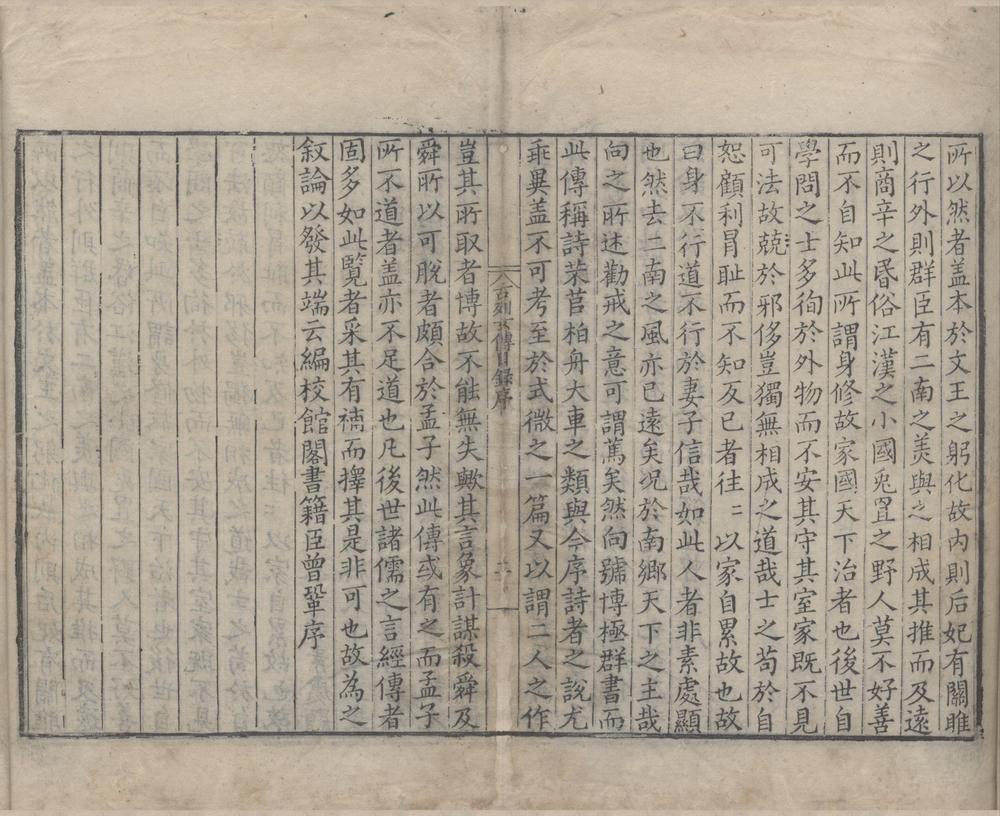 所以然者盖本於文王之躬化故内則后妃有關雎
之行外則群臣有二南之羙與之相成其推而及遠
則商辛之昏俗江漢之小國兎罝之野人莫不好善
而不自知此所謂身修故家國天下治者也後世自
學問之士多徇於外物而不安其守其室家既不見
可法故兢於邪侈豈獨無相成之道哉士之苟於自
恕顧利冒耻而不知反已者往〻以家自累故也故
曰身不行道不行於妻子信哉如此人者非素處顯
也然去二南之風亦已遠矣况於南郷天下之主哉
向之所述勸戒之意可謂篤矣然向號博極群書而
此傳稱詩芣苢柏舟大車之類與今序詩者之說尤
乖異盖不可考至於式微之一篇又以謂二人之作
古列女傳目録序
二
豈其所取者博故不能無失歟其言象計謀殺舜及
舜所以可脫者頗合於孟子然此傳或有之而孟子
所不道者盖亦不足道也凡後世諸儒之言經傳者
固多如此覽者采其有補而擇其是非可也故為之
叙論以發其端云編校館閣書籍臣曾鞏序